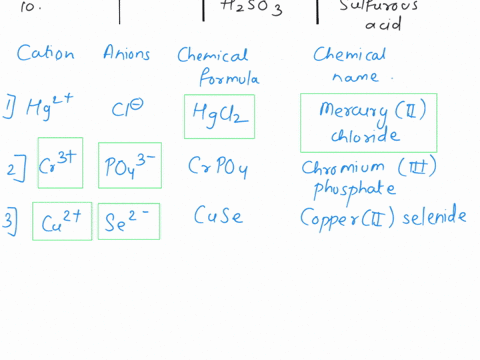 10. H2SO3 Sulfurous acid
Cation Anions Chemical formula Chemical name.
1] Hg²⁺ Cl⊖ HgCl2 Mercury (II) chloride
2] Cr³⁺ PO4³⁻ CrPO4 Chromium (III) phosphate
3] Cu²⁺ Se²⁻ CuSe Copper (II) selenide